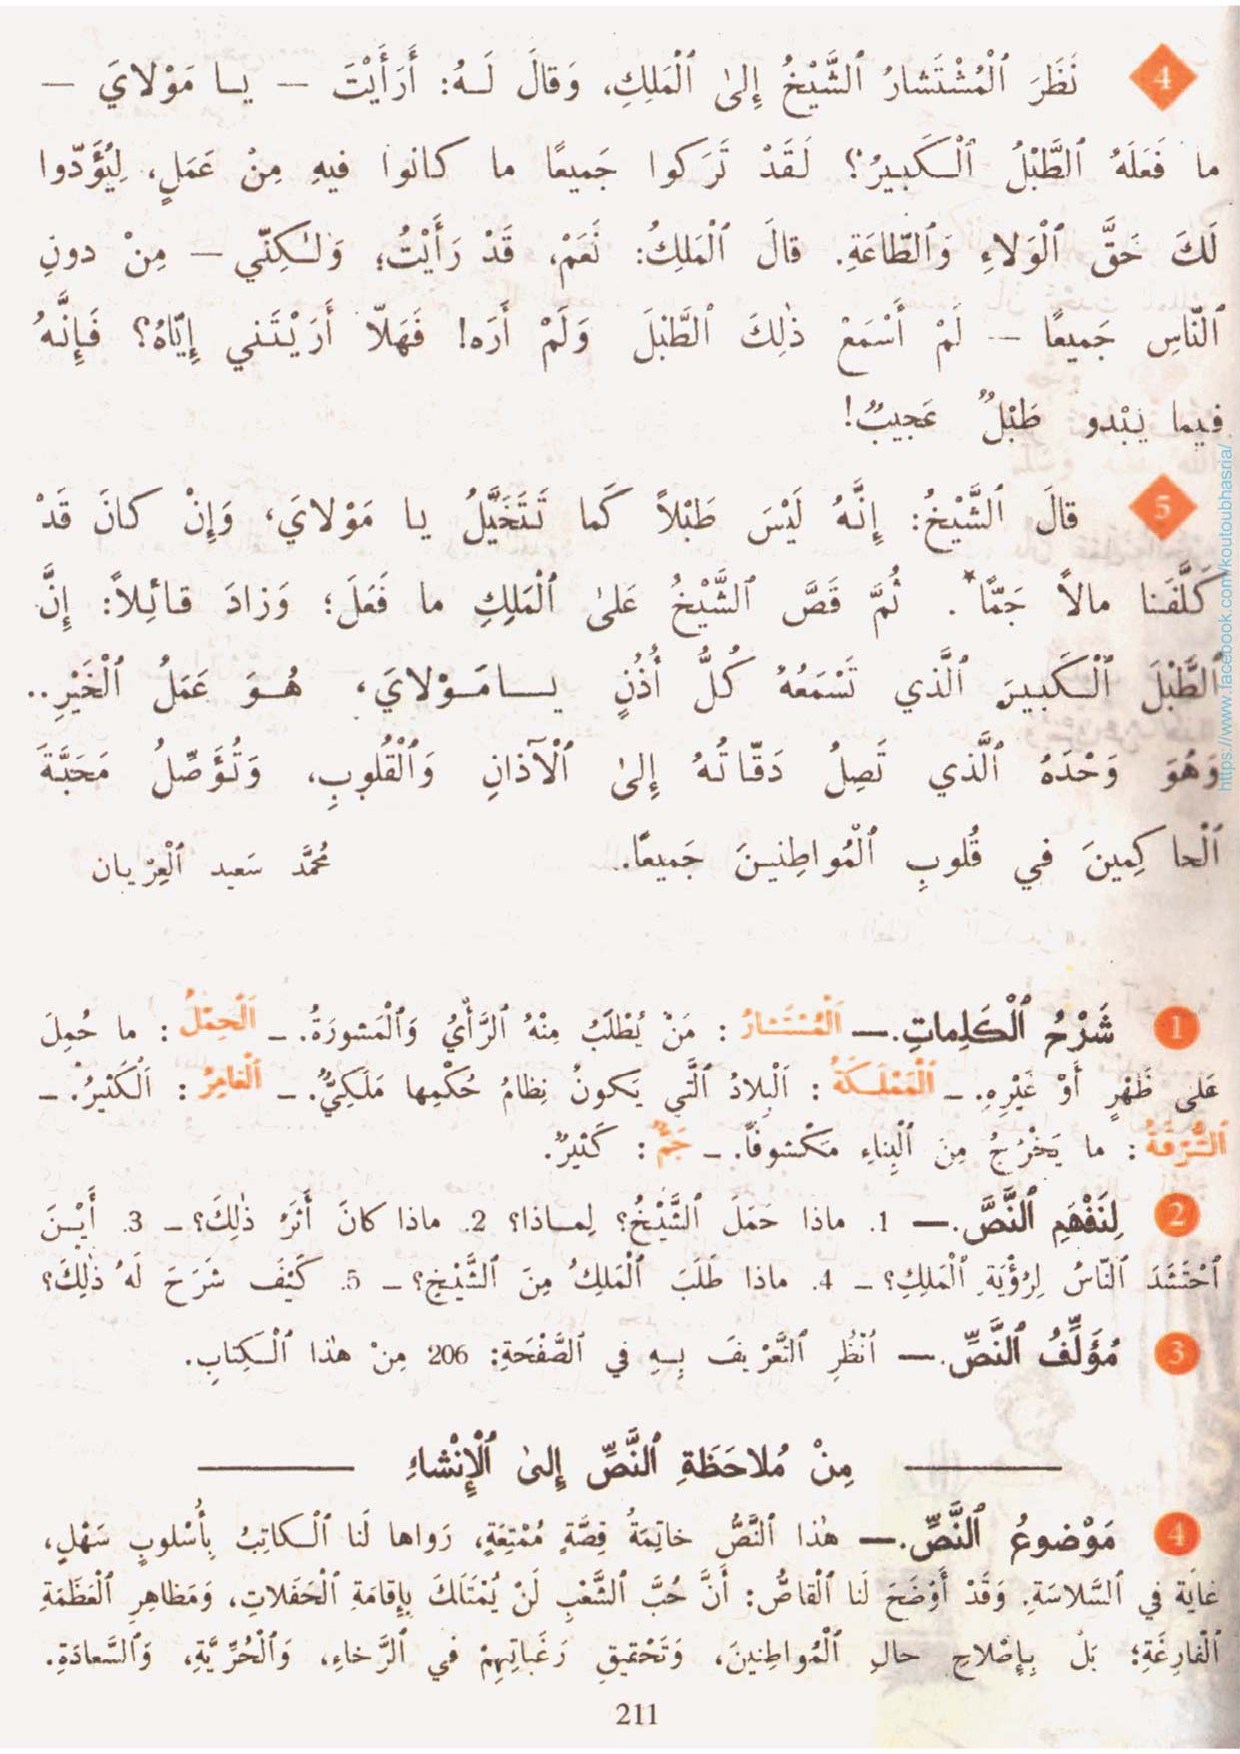 4 نَظَرَ ٱلْمُسْتَشارُ ٱلشَّيْخُ إِلىٰ ٱلْمَلِكِ، وَقالَ لَـهُ: أَرَأَيْتَ — يـا مَوْلايَ —
ما فَعَلَهُ ٱلطَّبْلُ ٱلْـكَبيرُ؟ لَـقَدْ تَرَكوا جَميعًا ما كانوا فيهِ مِنْ عَمَلٍ، لِيُؤَدّوا
لَكَ حَقَّ ٱلْوَلاءِ وَٱلطّاعَةِ. قالَ ٱلْمَلِكُ: نَعَمْ، قَدْ رَأَيْتُ؛ وَلٰـكِنّي — مِنْ دونِ
ٱلنّاسِ جَميعًا — لَمْ أَسْمَعْ ذٰلِكَ ٱلطَّبْلَ وَلَمْ أَرَه! فَهَلاّ أَرَيْتَني إِيّاهُ؟ فَإِنَّهُ
فيما يَبْدو طَبْلٌ عَجيبٌ!
5 قالَ ٱلشَّيْخُ: إِنَّهُ لَيْسَ طَبْلاً كَما تَتَخَيَّلُ يا مَوْلايَ، وَإِنْ كانَ قَدْ
كَلَّفَنا مالاً جَمًّا*. ثُمَّ قَصَّ ٱلشَّيْخُ عَلىٰ ٱلْمَلِكِ ما فَعَلَ؛ وَزادَ قائِـلاً: إِنَّ
ٱلطَّبْلَ ٱلْـكَبيرَ ٱلَّذي تَسْمَعُهُ كُلُّ أُذُنٍ يـامَـوْلايَ، هُـوَ عَمَلُ ٱلْخَيْرِ..
وَهُوَ وَحْدَهُ ٱلَّذي تَصِلُ دَقّاتُـهُ إِلىٰ ٱلْآذانِ وَٱلْقُلوبِ، وَتُؤَصِّلُ مَحَبَّةَ
ٱلْحاكِمينَ في قُلوبِ ٱلْمُواطِنينَ جَميعًا.. مُحَمَّد سَعيد ٱلْعِرْيان
1 شَرْحُ ٱلْكَلِماتِ. — اَلْمُسْتَشارُ : مَنْ يُطْلَبُ مِنْهُ ٱلرَّأْيُ وَٱلْمَشورَةُ. ـ اَلْحِمْلُ : ما حُمِلَ
عَلى ظَهْرٍ أَوْ غَيْرِهِ. ـ اَلْمَمْلَكَةُ : اَلْبِلادُ ٱلَّتي يَكونُ نِظامُ حُكْمِها مَلَكِيٌّ. ـ اَلْغامِرُ : اَلْكَثيرُ. ـ
اَلشُّرْفَةُ : ما يَخْرُجُ مِنَ ٱلْبِناءِ مَكْشوفًا. ـ جَمٌّ : كَثيرٌ.
2 لِنَفْهَمِ ٱلنَّصَّ. — 1. ماذا حَمَلَ ٱلشَّيْخُ؟ لِمـاذا؟ 2. ماذا كانَ أَثَرُ ذٰلِكَ؟ ـ 3. أَيْـنَ
اَحْتَشَدَ ٱلنّاسُ لِرُؤْيَةِ ٱلْمَلِكِ؟ ـ 4. ماذا طَلَبَ ٱلْمَلِكُ مِنَ ٱلشَّيْخِ؟ ـ 5. كَيْفَ شَرَحَ لَهُ ذٰلِكَ؟
3 مُؤَلِّفُ ٱلنَّصِّ. — اُنْظُرِ ٱلتَّعْريفَ بِـهِ في ٱلصَّفْحَةِ: 206 مِنْ هٰذا ٱلْـكِتابِ.
مِنْ مُلاحَظَةِ ٱلنَّصِّ إِلىٰ ٱلْإِنْشاءِ
4 مَوْضوعُ ٱلنَّصِّ. — هٰذا ٱلنَّصُّ خاتِمَةُ قِصَّةٍ مُمْتِعَةٍ، رَواها لَنا ٱلْـكاتِبُ بِأُسْلوبٍ سَهْلٍ،
غايَة في ٱلسَّلاسَةِ. وَقَدْ أَوْضَحَ لَنا ٱلْقاصُّ: أَنَّ حُبَّ ٱلشَّعْبِ لَنْ يُمْتَلَكَ بِإِقامَةِ ٱلْحَفَلاتِ، وَمَظاهِرِ ٱلْعَظَمَةِ
ٱلْفارِغَةِ؛ بَلْ بِإِصْلاحِ حالِ ٱلْمُواطِنينَ، وَتَحْقيقِ رَغَباتِهِمْ في ٱلرَّخاءِ، وَٱلْحُرِّيَّةِ، وَٱلسَّعادَةِ.
211
https://www.facebook.com/koutoubhasria/